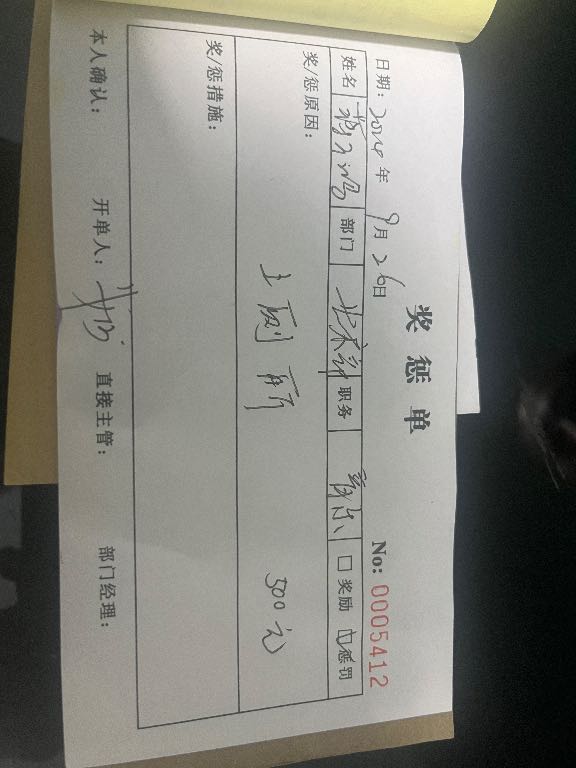 奖惩单
No: 0005412
日期: 2024 年 9 月 26 日
姓名 部门 技术部 职务 □ 奖励 ☑ 惩罚
奖/惩原因:
上厕所 500元
奖/惩措施:
本人确认: 开单人: 直接主管: 部门经理: